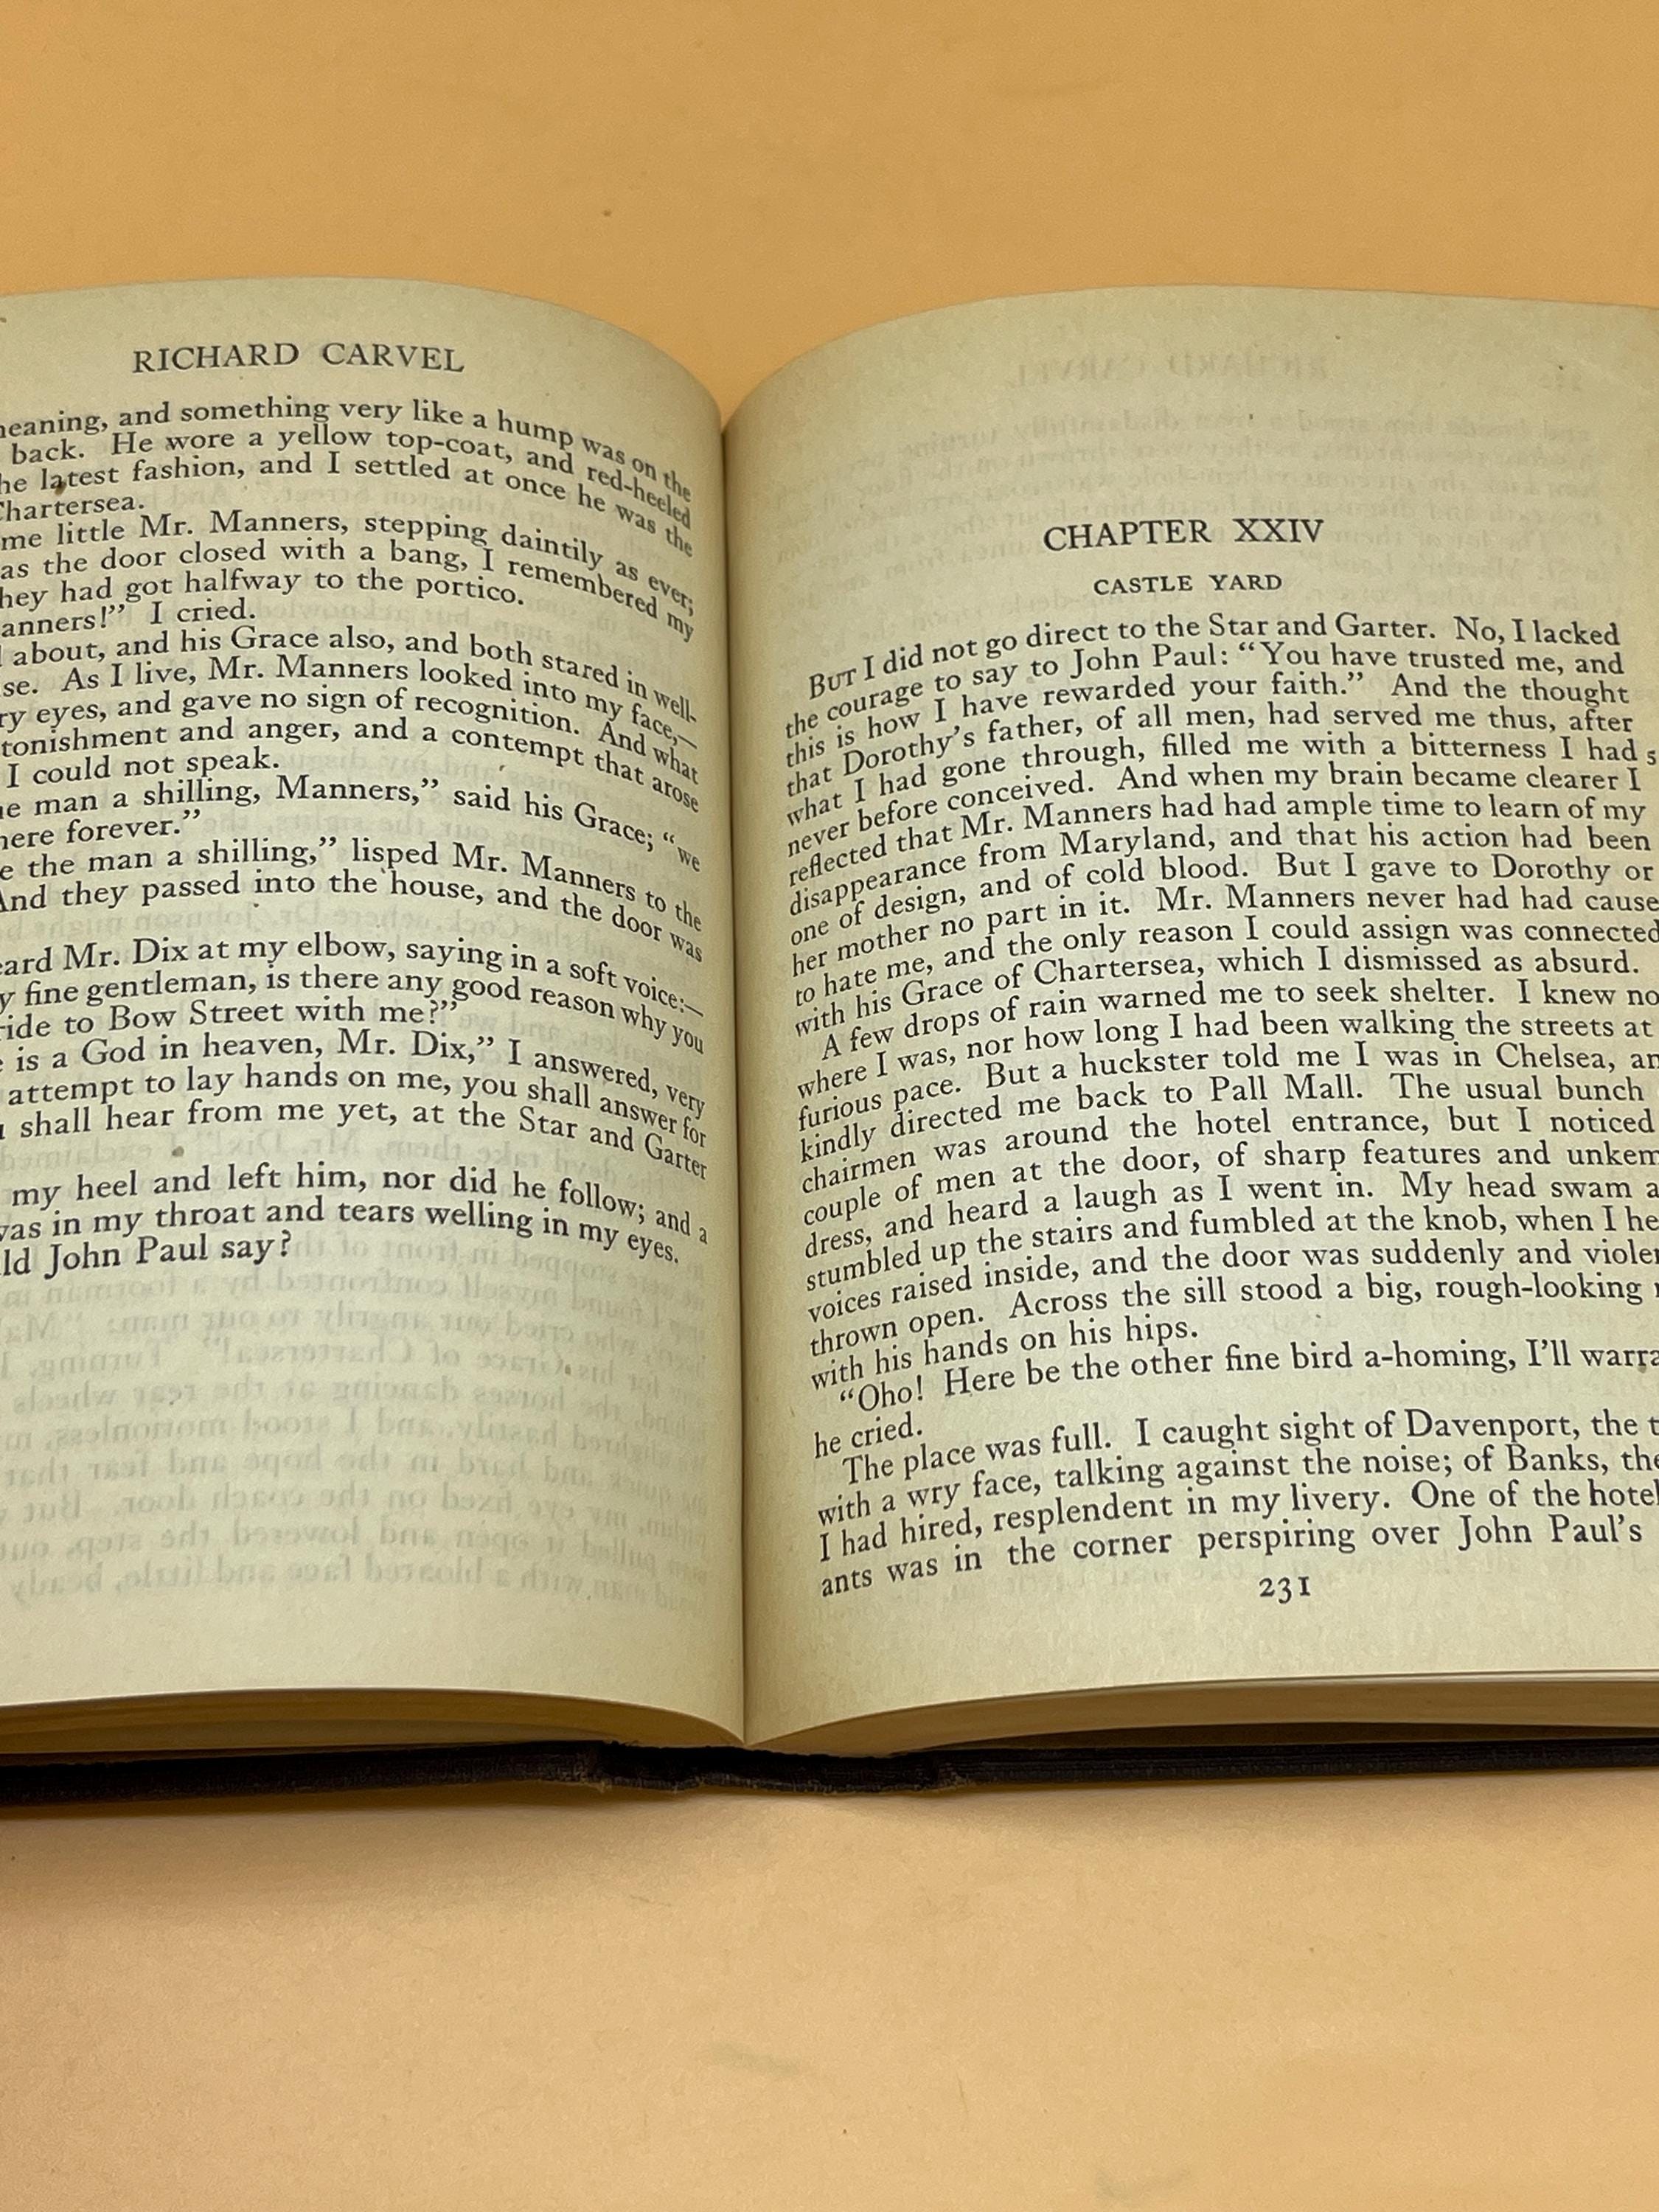 RICHARD CARVEL
meaning, and something very like a hump was on the
back. He wore a yellow top-coat, and red-heeled
the latest fashion, and I settled at once he was the
Chartersea.
me little Mr. Manners, stepping daintily as ever;
as the door closed with a bang, I remembered my
they had got halfway to the portico.
anners!” I cried.
about, and his Grace also, and both stared in well-
se. As I live, Mr. Manners looked into my face,—
ry eyes, and gave no sign of recognition. And what
tonishment and anger, and a contempt that arose
I could not speak.
e man a shilling, Manners,” said his Grace; “we
here forever.”
e the man a shilling,” lisped Mr. Manners to the
And they passed into the house, and the door was
eard Mr. Dix at my elbow, saying in a soft voice:—
y fine gentleman, is there any good reason why you
ride to Bow Street with me?”
e is a God in heaven, Mr. Dix,” I answered, very
attempt to lay hands on me, you shall answer for
u shall hear from me yet, at the Star and Garter
my heel and left him, nor did he follow; and a
was in my throat and tears welling in my eyes.
ld John Paul say?
CHAPTER XXIV
CASTLE YARD
But I did not go direct to the Star and Garter. No, I lacked
the courage to say to John Paul: “You have trusted me, and
this is how I have rewarded your faith.” And the thought
that Dorothy’s father, of all men, had served me thus, after
what I had gone through, filled me with a bitterness I had
never before conceived. And when my brain became clearer I
reflected that Mr. Manners had had ample time to learn of my
disappearance from Maryland, and that his action had been
one of design, and of cold blood. But I gave to Dorothy or
her mother no part in it. Mr. Manners never had had cause
to hate me, and the only reason I could assign was connected
with his Grace of Chartersea, which I dismissed as absurd.
A few drops of rain warned me to seek shelter. I knew no
where I was, nor how long I had been walking the streets at
furious pace. But a huckster told me I was in Chelsea, an
kindly directed me back to Pall Mall. The usual bunch
chairmen was around the hotel entrance, but I noticed
couple of men at the door, of sharp features and unkem
dress, and heard a laugh as I went in. My head swam a
stumbled up the stairs and fumbled at the knob, when I he
voices raised inside, and the door was suddenly and violen
thrown open. Across the sill stood a big, rough-looking
with his hands on his hips.
“Oho! Here be the other fine bird a-homing, I’ll warra
he cried.
The place was full. I caught sight of Davenport, the t
with a wry face, talking against the noise; of Banks, the
I had hired, resplendent in my livery. One of the hotel
ants was in the corner perspiring over John Paul’s
231